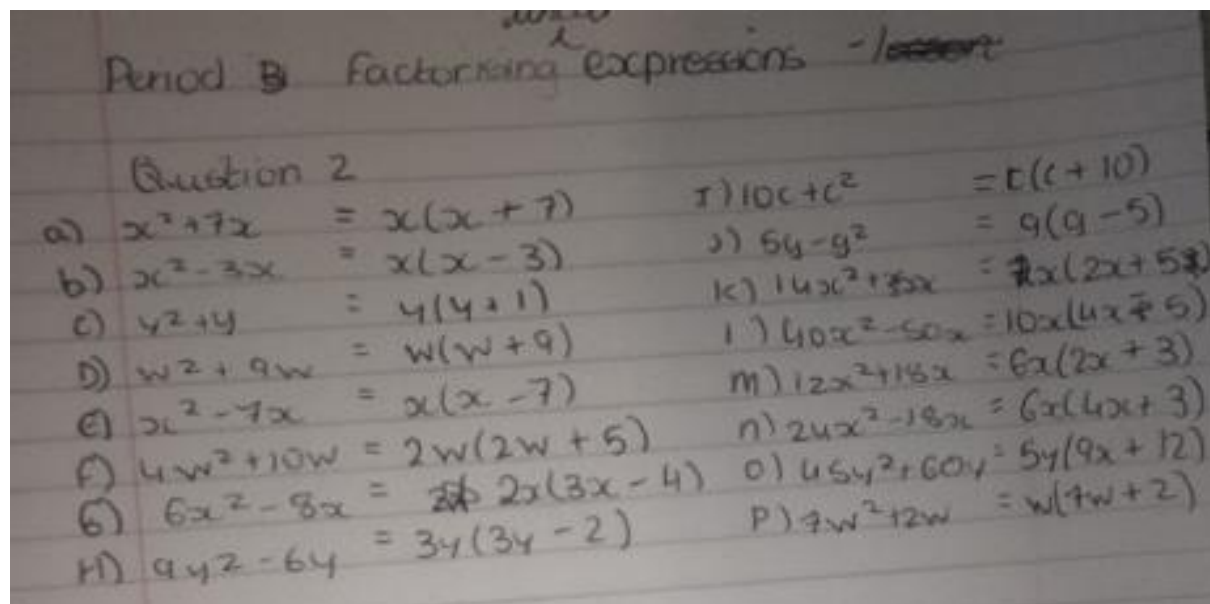 Period B Factorising expressions -
Question 2
a) x²+7x = x(x + 7)
b) x² - 3x = x(x - 3)
c) y²+y = y(y + 1)
D) w² + 9w = w(w + 9)
E) x² - 7x = x(x - 7)
F) 4w² + 10w = 2w(2w + 5)
G) 6x² - 8x = 2x(3x - 4)
H) 9y2 - 6y = 3y(3y - 2)
I) 10c + c² = c(c + 10)
J) 5y - y² = g(g - 5)
K) 14x² + x = x(2x + 5
l) 40x² - 50x = 10x(4x 5)
m) 12x² + 18x = 6x(2x + 3)
n) 24x² - 18x = 6x(4x + 3)
o) 45y² + 60y = 5y(9x + 12)
P) 7w² + 2w = w(7w + 2)